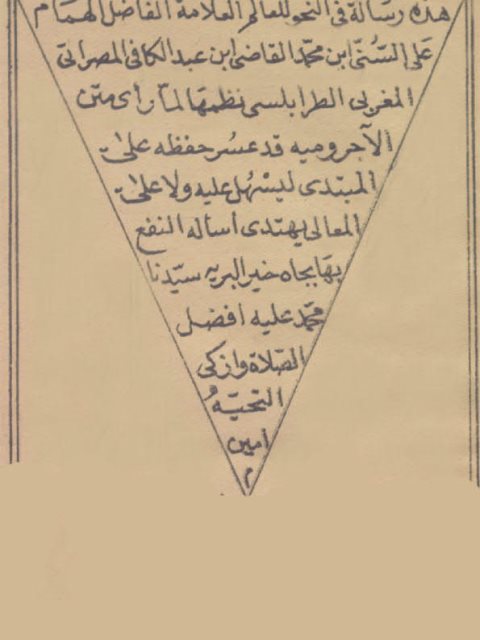 هذه رسالة في النحو للعالم العلامة الفاضل الهمام
على السُنّي ابن محمّد القاضي ابن عبد الكافي المصراتي
المغربي الطرابلسي نظمها لمّا رأى متن
الآجروميه قد عسُر حفظه على
المبتدى ليسْهُل عليه ولا على
المعالى يهتدى أساله النفع
بهَا بجاه خير البريه سيّدنا
محمّد عليه أفضل
الصّلاة وازكى
التحيّه
امين
م